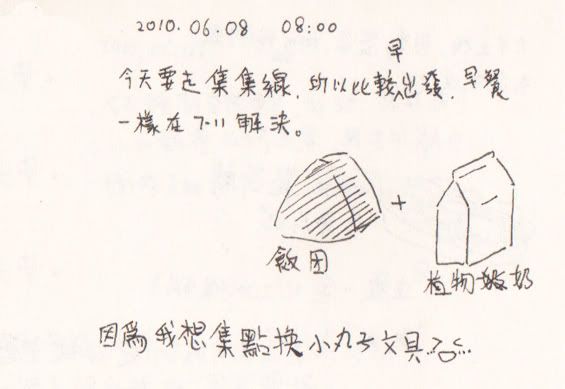 2010.06.08 08:00
早
今天要走集集線，所以比較出發，早餐
一樣在7-11解決。
+
飯団
植物酸奶
因為我想集點換小丸子文具...